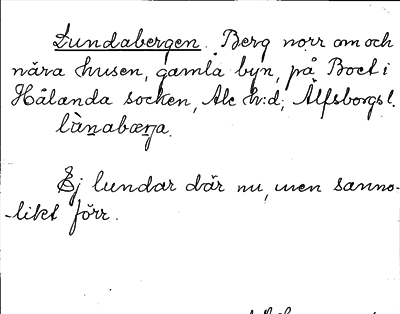 Lundabergen. Berg norr om och
nära husen, gamla byn, på Boet i
Hålanda socken, Ale h:d, Älfsborgs l.
lùnabærɲa.
Ej lundar där nu, men sanno-
-likt förr.